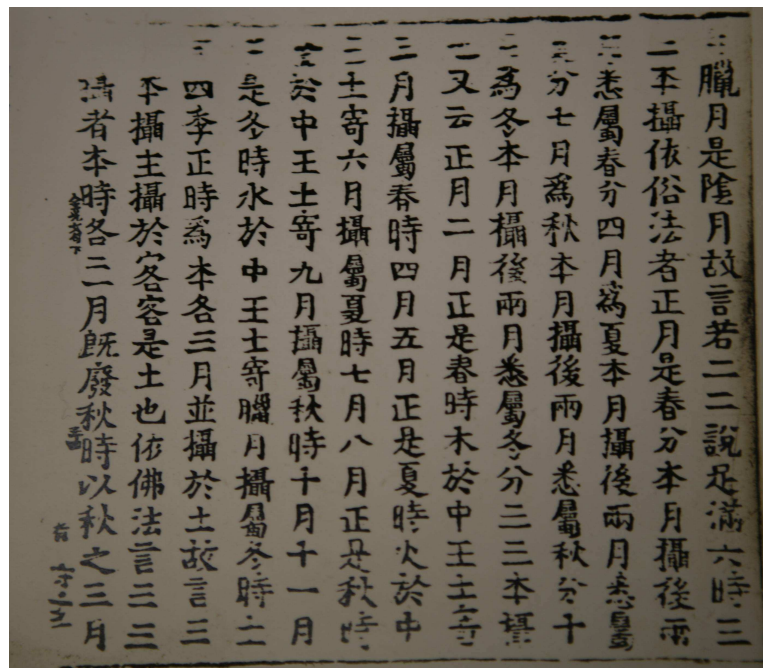 臘月是陰月故言若二二說足滿六時三
二本攝依俗法者正月是春分本月攝後兩
悉屬春分四月爲夏本月攝後兩月悉屬
分七月爲秋本月攝後兩月悉屬秋分十
爲冬本月攝後兩月悉屬冬分二三本攝
又云正月二月正是春時木於中王土寄
三月攝屬春時四月五月正是夏時火於中
土寄六月攝屬夏時七月八月正是秋時
金於中王土寄九月攝屬秋時十月十一月
是冬時水於中王土寄臘月攝屬冬時二
四季正時爲本各三月並攝於土故言三
本攝主攝於客客是土也依佛法言三三
攝者本時各三月旣廢秋時以秋之三月